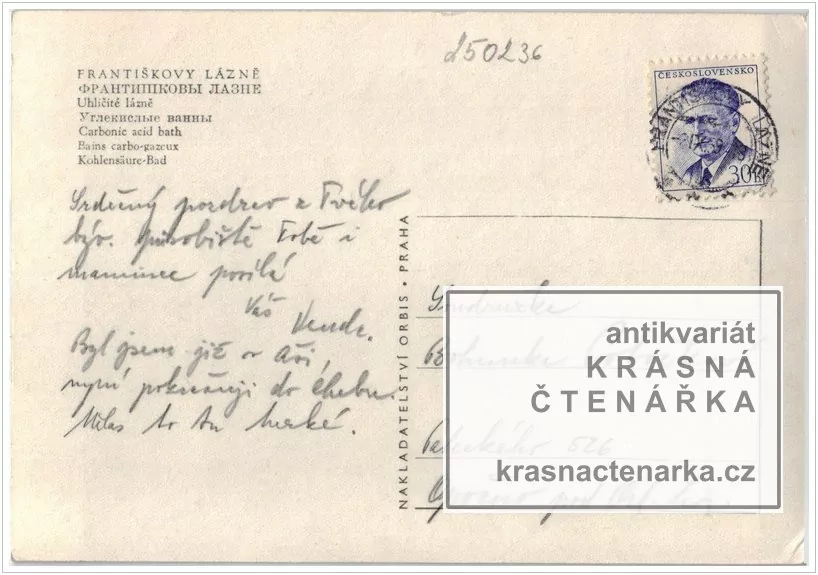 250236
FRANTIŠKOVY LÁZNĚ
ФРАНТИШКОВЫ ЛАЗНЕ
Uhličité lázně
Углекислые ванны
Carbonic acid bath
Bains carbo-gazeux
Kohlensäure-Bad
ČESKOSLOVENSKO
30h
FRANTIŠKOVY LÁZNĚ
Srdečný pozdrav z Tvého
býv. působiště Tobě i
mamince posílá
Váš
Venda.
Byl jsem již v Aši,
nyní pokračuji do Chebu.
Máš to tu hezké.
NAKLADATELSTVÍ ORBIS · PRAHA
Soudružka
Bohumila
Palackého 526
Opočno pod Orl.
antikvariát
KRÁSNÁ
ČTENÁŘKA
krasnactenarka.cz